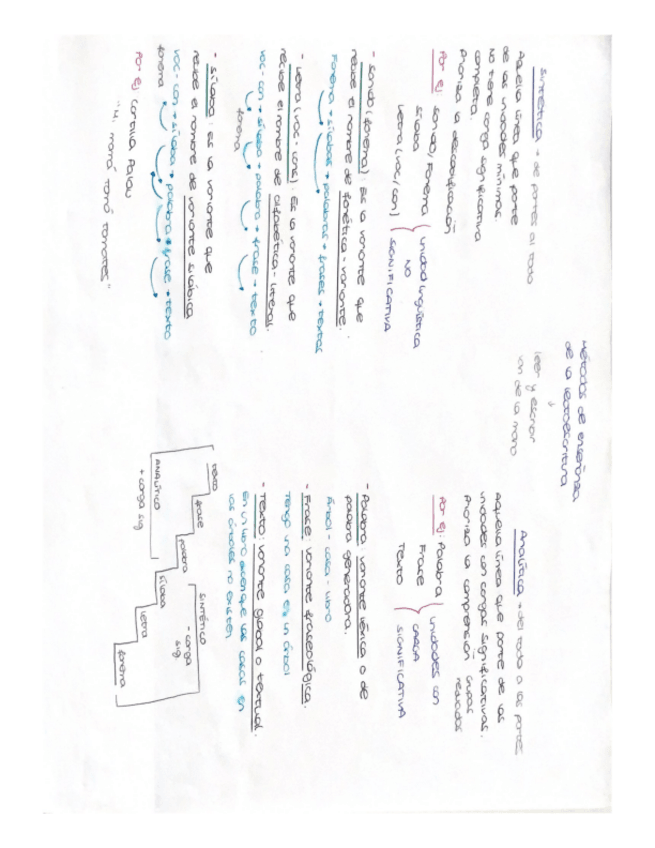 Métodos de enseñanza
de la lectoescritura
↓
leer y escribir
van de la mano
Sintética → de partes al todo
Aquella línea que parte
de las unidades mínimas.
No tiene carga significativa
completa.
Prioriza la decodificación
Por ej sonido/Fonema
sílaba
Letra (voc/con)
unidad lingüística
NO
SIGNIFICATIVA
- Sonido (fonema): Es la variante que
recibe el nombre de fonética - variante.
Fonema → sílabas → palabras → frases → textos
- Letra (voc - cons): Es la variante que
recibe el nombre de alfabética - literal.
voc - con → sílaba → palabra → frase → texto
fonema
- Sílaba: Es la variante que
recibe el nombre de variante silábica
voc - con → sílaba → palabra → frase → texto
fonema
Por ej Cartilla Palau
"Mi mamá tomó tomates"
Analítica → del todo a las partes
Aquella línea que parte de las
unidades con cargas significativas.
Prioriza la comprensión grupos
reducidos
Por ej: Palabra
Frase
Texto
unidades con
CARGA
SIGNIFICATIVA
- Palabra: variante léxica o de
palabra generadora.
Árbol - casa - libro
- Frase: variante fraseológica.
Tengo una casa en un árbol
- Texto: variante global o textual.
En un libro dicen que las casas en
los árboles no existen
texto
frase
palabra
sílaba
letra
fonema
ANALÍTICO
+ carga sig
SINTÉTICO
- carga
sig.